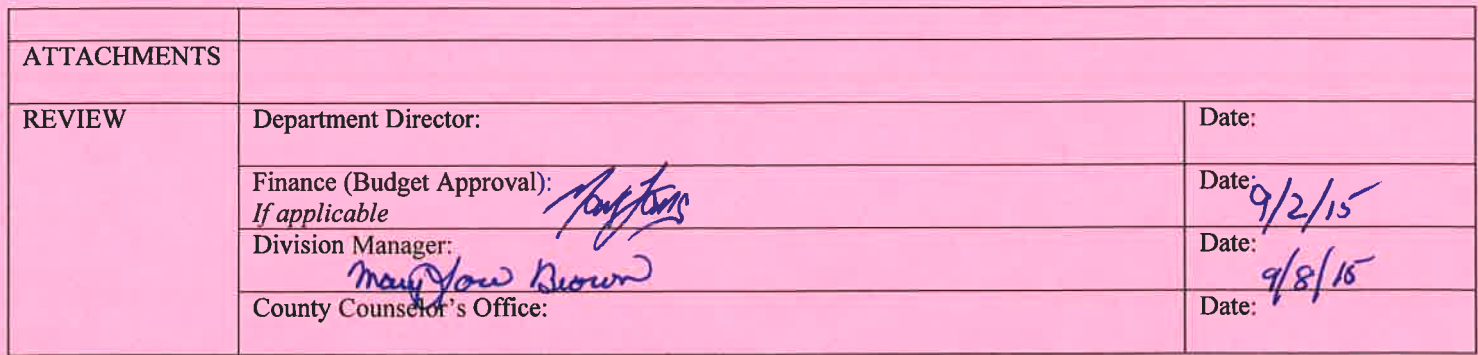 ATTACHMENTS
REVIEW
Department Director:
Date:
Finance (Budget Approval):
If applicable
Date:
9/2/15
Division Manager:
Mary Jow Brown
Date:
9/8/15
County Counselor's Office:
Date: